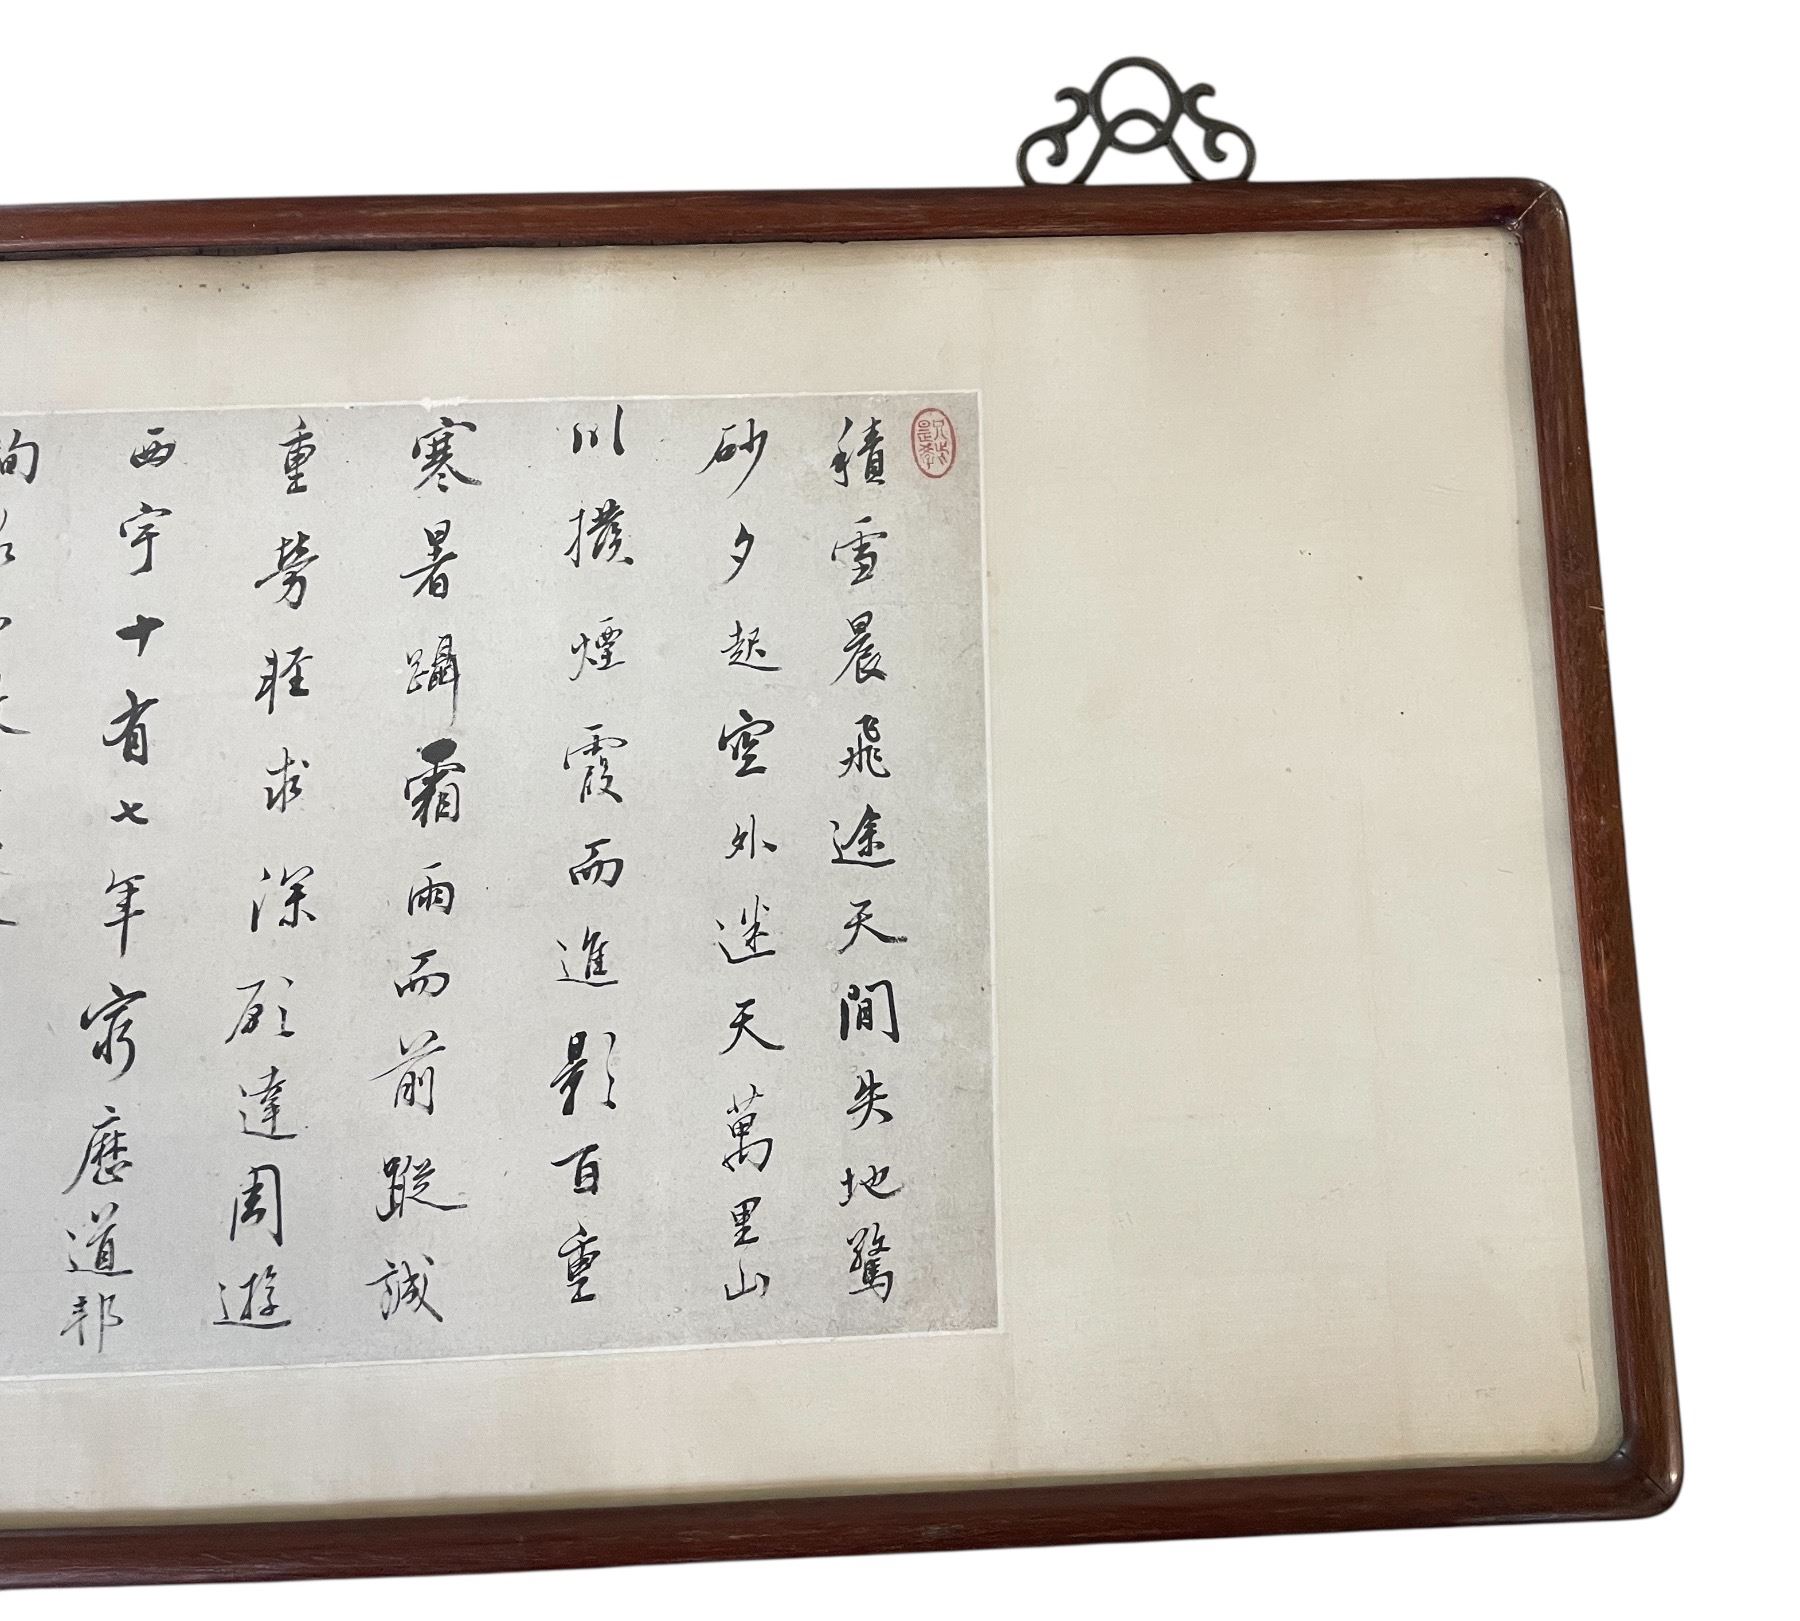 積雪晨飛途天間失地驚
砂夕起空外迷天萬里山
川撥煙霞而進影百重
寒暑躡霜雨而前蹤誠
重勞輕求深願達周遊
西宇十有七年窮歷道邦
詢